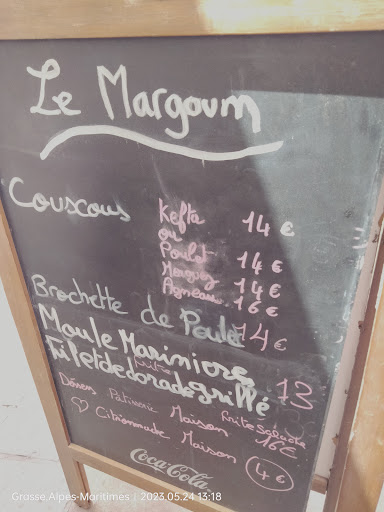 Le Margoum
Couscous
Kefta 14 €
ou
Poulet 14 €
Merguez 14 €
Agneau 16 €
Brochette de Poulet 14 €
Moule Mariniere 13
frite
Filet de dorade grillé
frite salade
16 €
Désers Patisserie Maison
♡ Citronnade Maison 4 €
Coca-Cola
Grasse,Alpes-Maritimes | 2023.05.24 13:18